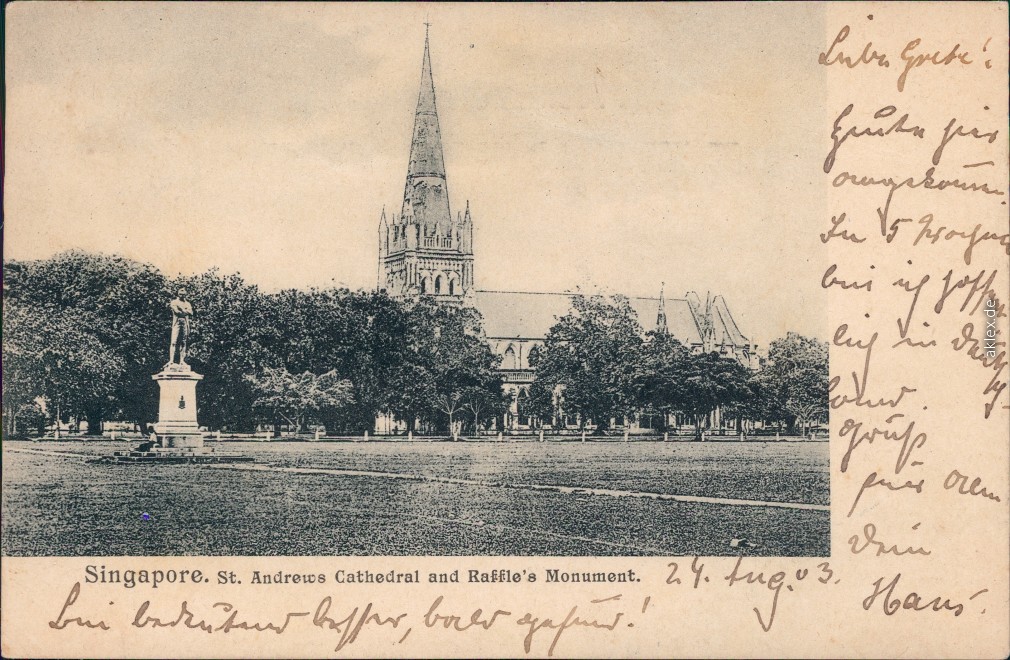 Liebe Grete!
Heute hier
angekomm.
In 5 Wochen
bin ich hoffent
lich in Deutsch
land.
Gruß
für alle
Dein
Hans.
Singapore. St. Andrews Cathedral and Raffle's Monument.
24. Aug. 03.
Bin bedeutend besser, bald gesund!
aklex.de